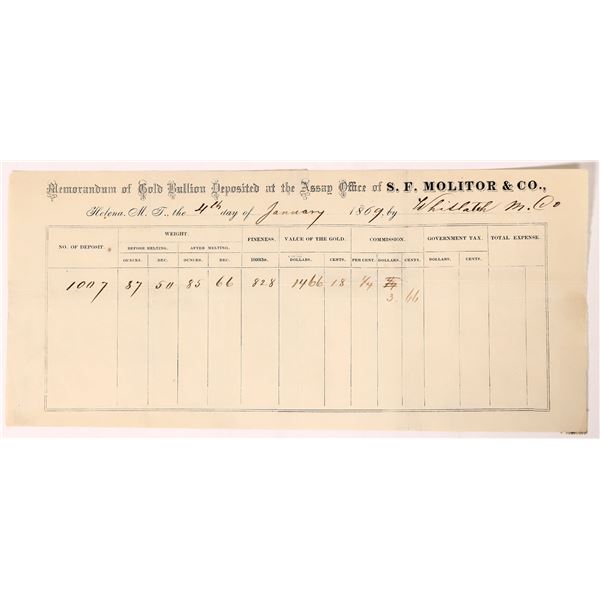 Memorandum of Gold Bullion Deposited at the Assay Office of S. F. MOLITOR & CO.,
Helena, M. T., the 4th day of January 1869, by Whitlatch M. Co
NO. OF DEPOSIT. WEIGHT. FINENESS. VALUE OF THE GOLD. COMMISSION. GOVERNMENT TAX. TOTAL EXPENSE.
BEFORE MELTING. AFTER MELTING.
OUNCES. DEC. OUNCES. DEC. 1000ths. DOLLARS. CENTS. PER CENT. DOLLARS. CENTS. DOLLARS. CENTS.
1007 87 50 85 66 828 1466 18 1/4
3 66